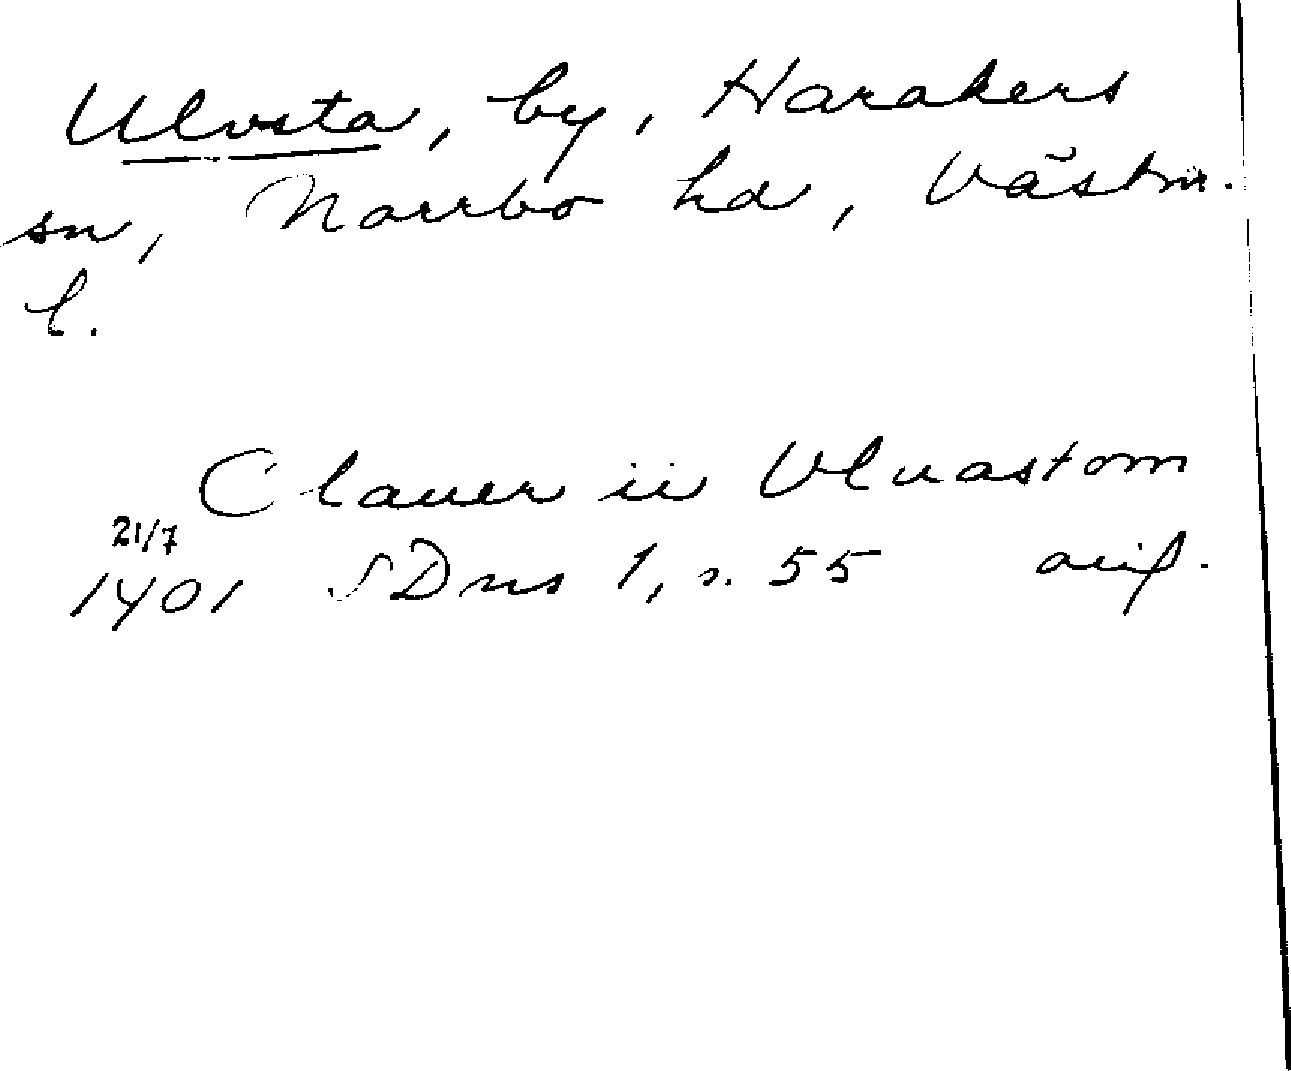 Ulvsta, by, Harakers
sn, Norrbo hd, Västm.
l.
Clauer ii Vluastom
21/7
1401 SDns 1, s. 55 avif.